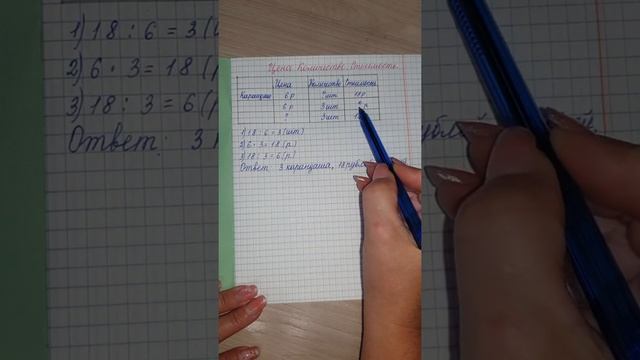 Цена Количество Стоимость
Цена Количество Стоимость
Карандаши 6 р ? шт 18 р
6 р 3 шт ? р
? 3 шт
1) 18 : 6 = 3 (шт)
2) 6 · 3 = 18 (р.)
3) 18 : 3 = 6 (р.)
Ответ: 3 карандаша, 18 рубл
1) 18 : 6 = 3 (
2) 6 · 3 = 18 (р
3) 18 : 3 = 6 (р.
Ответ: 3